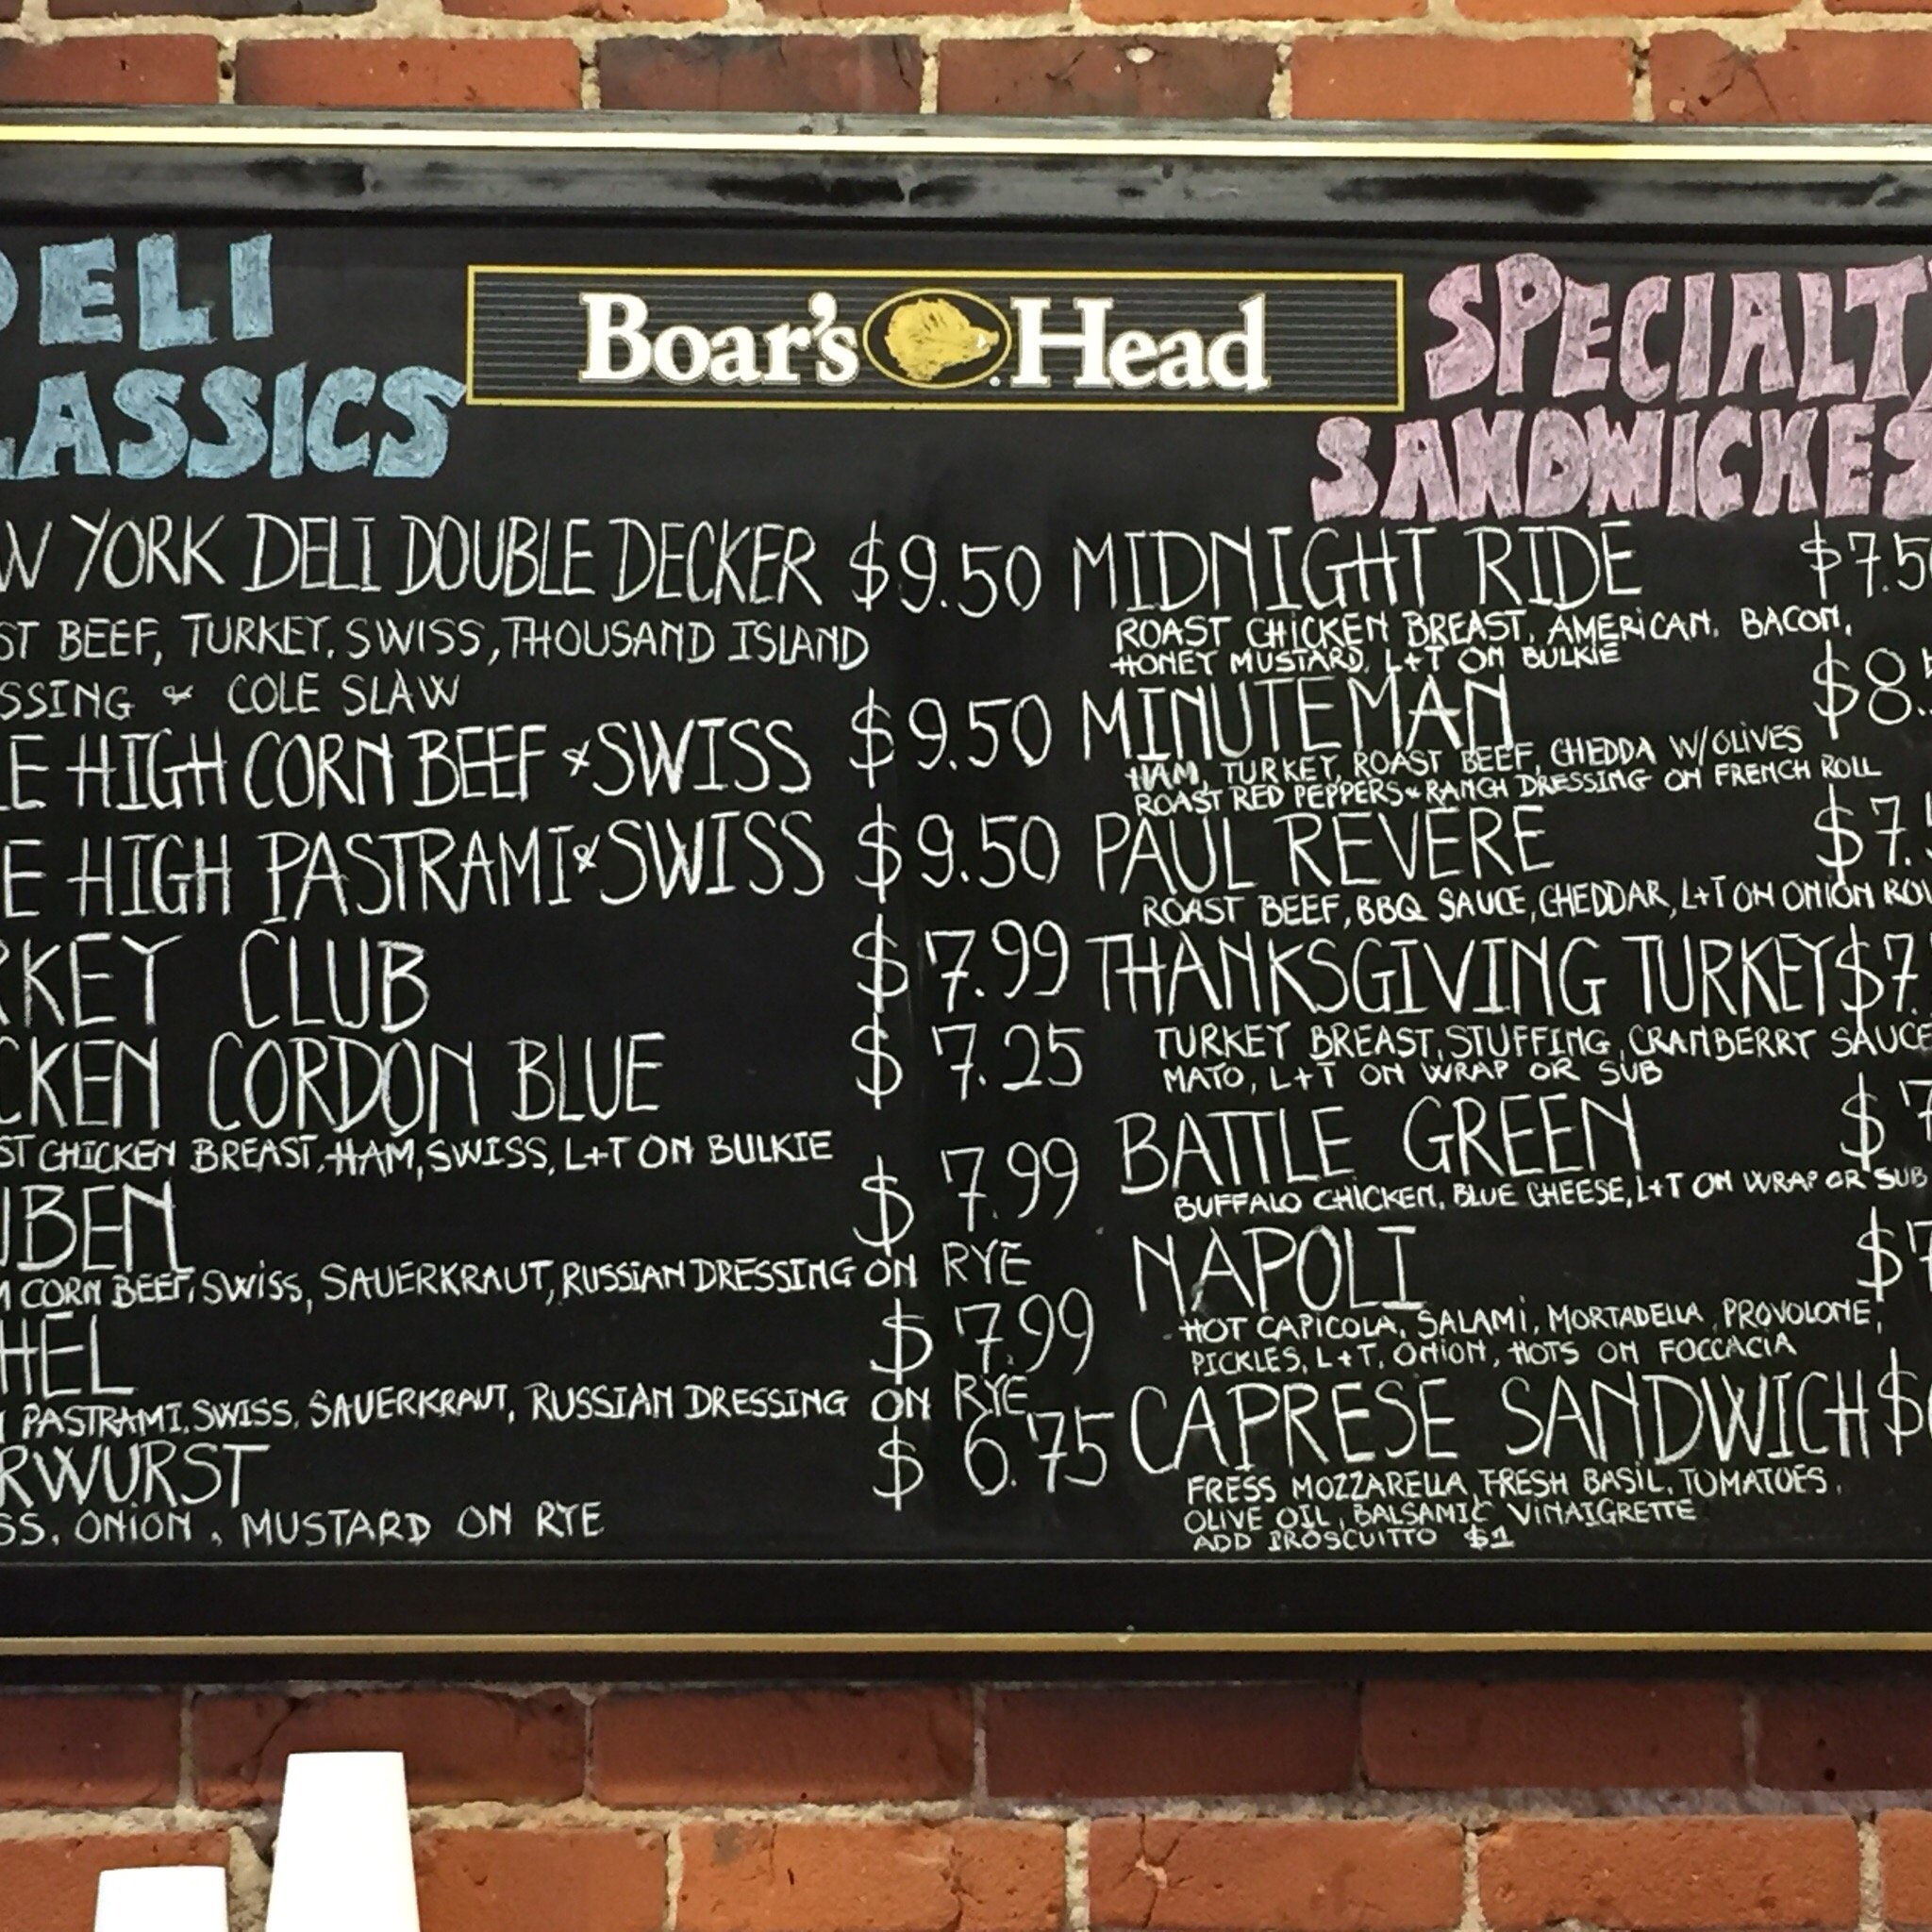 DELI
LASSICS
W YORK DELI DOUBLE DECKER $9.50
ST BEEF, TURKEY, SWISS, THOUSAND ISLAND
SSING & COLE SLAW
LE HIGH CORN BEEF & SWISS $9.50
E HIGH PASTRAMI & SWISS $9.50
RKEY CLUB $7.99
CKEN CORDON BLUE $7.25
ST CHICKEN BREAST, HAM, SWISS, L+T ON BULKIE
UBEN $7.99
M CORN BEEF, SWISS, SAUERKRAUT, RUSSIAN DRESSING ON RYE
HEL $7.99
PASTRAMI, SWISS, SAUERKRAUT, RUSSIAN DRESSING ON RYE
RWURST $6.75
SS, ONION, MUSTARD ON RYE
Boar's Head
SPECIALTY
SANDWICHES
MIDNIGHT RIDE $7.50
ROAST CHICKEN BREAST, AMERICAN, BACON,
HONEY MUSTARD, L+T ON BULKIE
MINUTEMAN $8.
HAM, TURKEY, ROAST BEEF, CHEDDA W/OLIVES
ROAST RED PEPPERS & RANCH DRESSING ON FRENCH ROLL
PAUL REVERE $7.
ROAST BEEF, BBQ SAUCE, CHEDDAR, L+T ON ONION RO
THANKSGIVING TURKEY $7.
TURKEY BREAST, STUFFING, CRANBERRY SAUCE
MATO, L+T ON WRAP OR SUB
BATTLE GREEN $7
BUFFALO CHICKEN, BLUE CHEESE, L+T ON WRAP OR SUB
NAPOLI $7
HOT CAPICOLA, SALAMI, MORTADELLA, PROVOLONE,
PICKLES, L+T, ONION, HOTS ON FOCCACIA
CAPRESE SANDWICH $
FRESS MOZZARELLA, FRESH BASIL, TOMATOES,
OLIVE OIL, BALSAMIC VINAIGRETTE
ADD PROSCUITTO $1